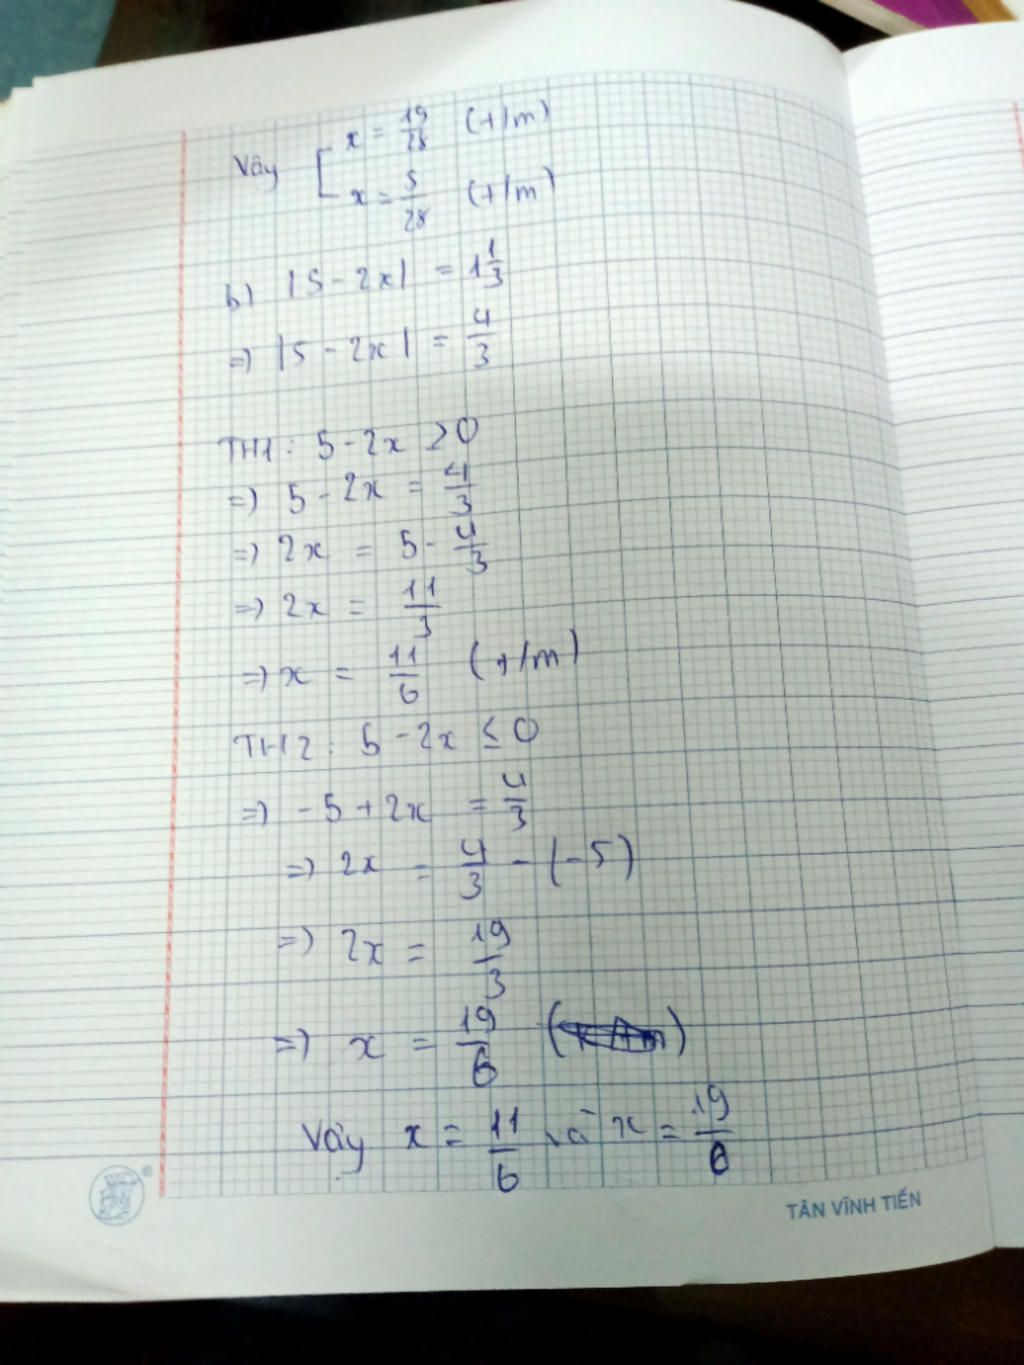 Vây [ x = 19/28 (t/m)
x = 5/28 (t/m)
b) |5 - 2x| = 1 1/3
=> |5 - 2x| = 4/3
TH1 : 5 - 2x > 0
=> 5 - 2x = 4/3
=> 2x = 5 - 4/3
=> 2x = 11/3
=> x = 11/6 (t/m)
TH2 : 5 - 2x ≤ 0
=> - 5 + 2x = 4/3
=> 2x = 4/3 - (-5)
=> 2x = 19/3
=> x = 19/6
Vậy x = 11/6 và x = 19/6
TÂN VĨNH TIẾN